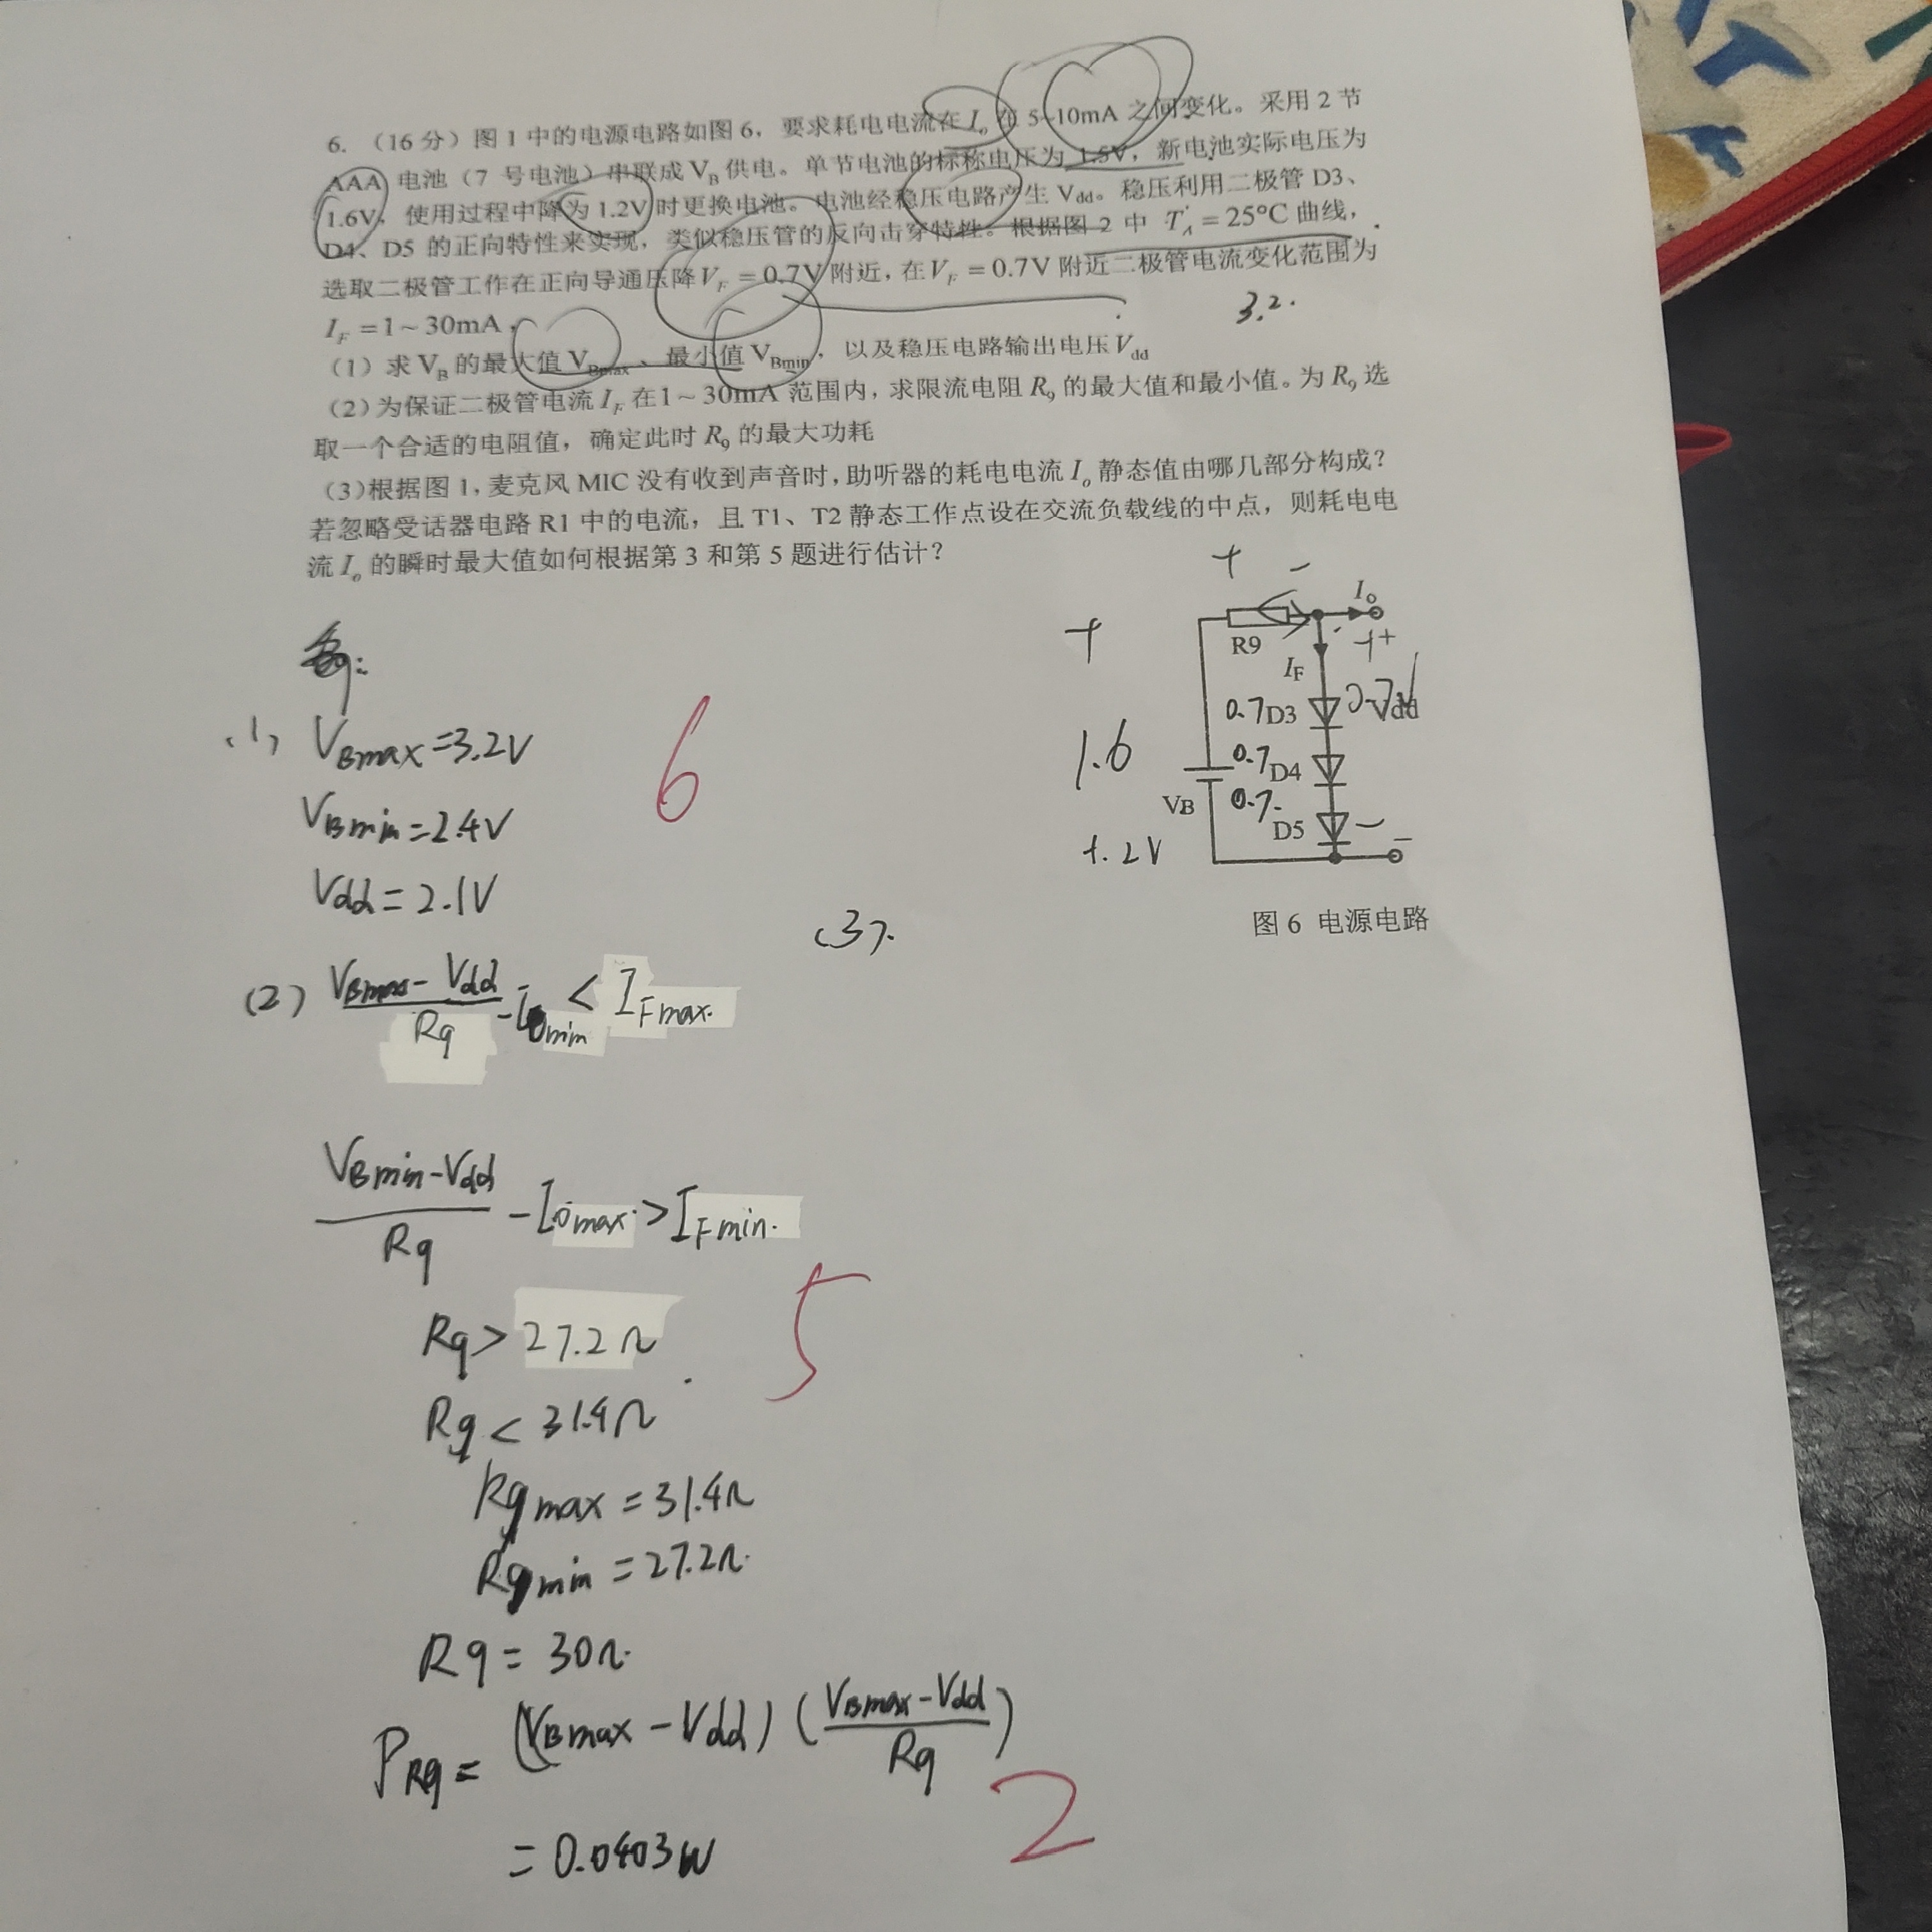 6. （16 分）图 1 中的电源电路如图 6，要求耗电电流在 Io 在 5~10mA 之间变化。采用 2 节
AAA 电池（7 号电池）串联成 VB 供电。单节电池的标称电压为 1.5V，新电池实际电压为
1.6V，使用过程中降为 1.2V 时更换电池。电池经稳压电路产生 Vdd。稳压利用二极管 D3、
D4、D5 的正向特性来实现，类似稳压管的反向击穿特性。根据图 2 中 TA = 25°C 曲线，
选取二极管工作在正向导通压降 VF = 0.7V 附近，在 VF = 0.7V 附近二极管电流变化范围为
IF = 1 ~ 30mA，
3.2.
（1）求 VB 的最大值 VBmax、最小值 VBmin，以及稳压电路输出电压 Vdd
（2）为保证二极管电流 IF 在 1 ~ 30mA 范围内，求限流电阻 R9 的最大值和最小值。为 R9 选
取一个合适的电阻值，确定此时 R9 的最大功耗
（3）根据图 1，麦克风 MIC 没有收到声音时，助听器的耗电电流 Io 静态值由哪几部分构成？
若忽略受话器电路 R1 中的电流，且 T1、T2 静态工作点设在交流负载线的中点，则耗电电
流 Io 的瞬时最大值如何根据第 3 和第 5 题进行估计？
+ −
Io
+
R9
++
IF
0.7 D3
0.7V
Vdd
1.6
0.7 D4
VB
0.7
D5
−
−
1.2V
图 6 电源电路
(1) VBmax=3.2V
6
VBmin=2.4V
Vdd=2.1V
(3).
(2) (VBmax-Vdd)/R9 - Iomin < IFmax.
(VBmin-Vdd)/R9 - Iomax. > IFmin.
R9 > 27.2Ω
5
R9 < 31.4Ω
R9max = 31.4Ω
R9min = 27.2Ω.
R9 = 30Ω.
PR9 = (VBmax - Vdd) ((VBmax-Vdd)/R9)
2
= 0.0403W